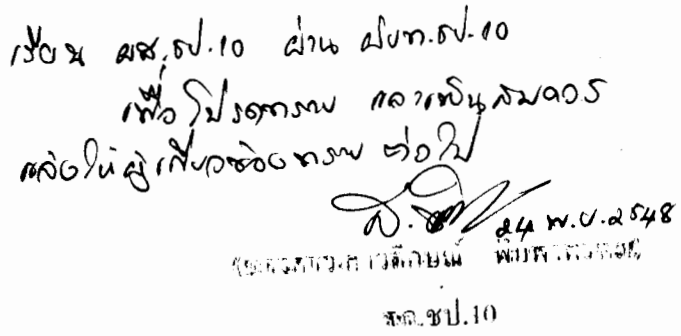 เรียน ผส.ชป.10 ผ่าน ฝบท.ชป.10
เพื่อโปรดทราบ และเห็นสมควร
แจ้งให้ผู้เกี่ยวข้องทราบ ต่อไป
24 พ.ย. 2548
ชป.10